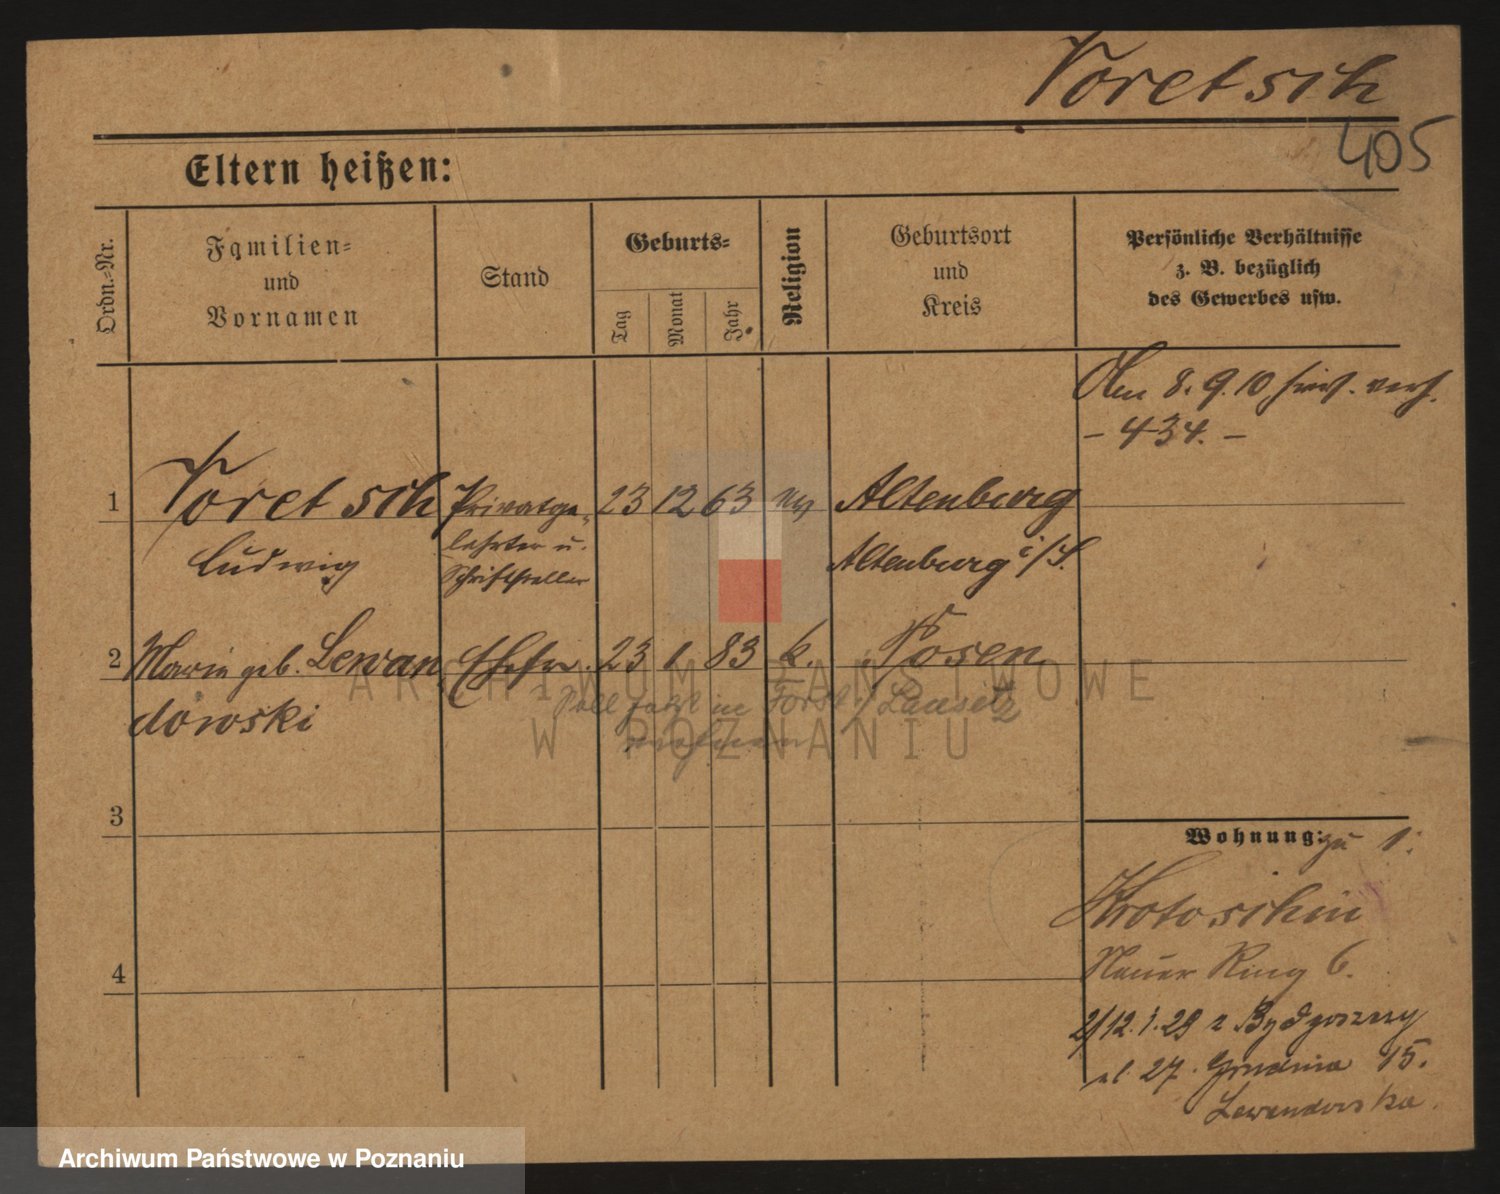 Voretsch
405
Eltern heißen:
Ordn.-Nr.
Familien-
und
Vornamen
Stand
Geburts-
Tag
Monat
Jahr
Religion
Geburtsort
und
Kreis
Persönliche Verhältnisse
z. B. bezüglich
des Gewerbes usw.
Am 8. 9. 10 verh.
– 434. –
1
Voretsch
Ludwig
Privatge-
lehrter u.
Schriftsteller
23 12 63
Altenburg
Altenburg i/S.
2
Marie geb. Lewan
dowski
Ehefr. 23 1 83 k. Posen
Soll jetzt in Forst i/Lausitz
wohnen
3
4
Wohnung: zu 1:
Krotoschin
Neuer Ring 6.
2/12.1.29 z Bydgoszczy
ul. 27. Grudnia 15.
Lewandowska
ARCHIWUM PAŃSTWOWE
W POZNANIU
Archiwum Państwowe w Poznaniu